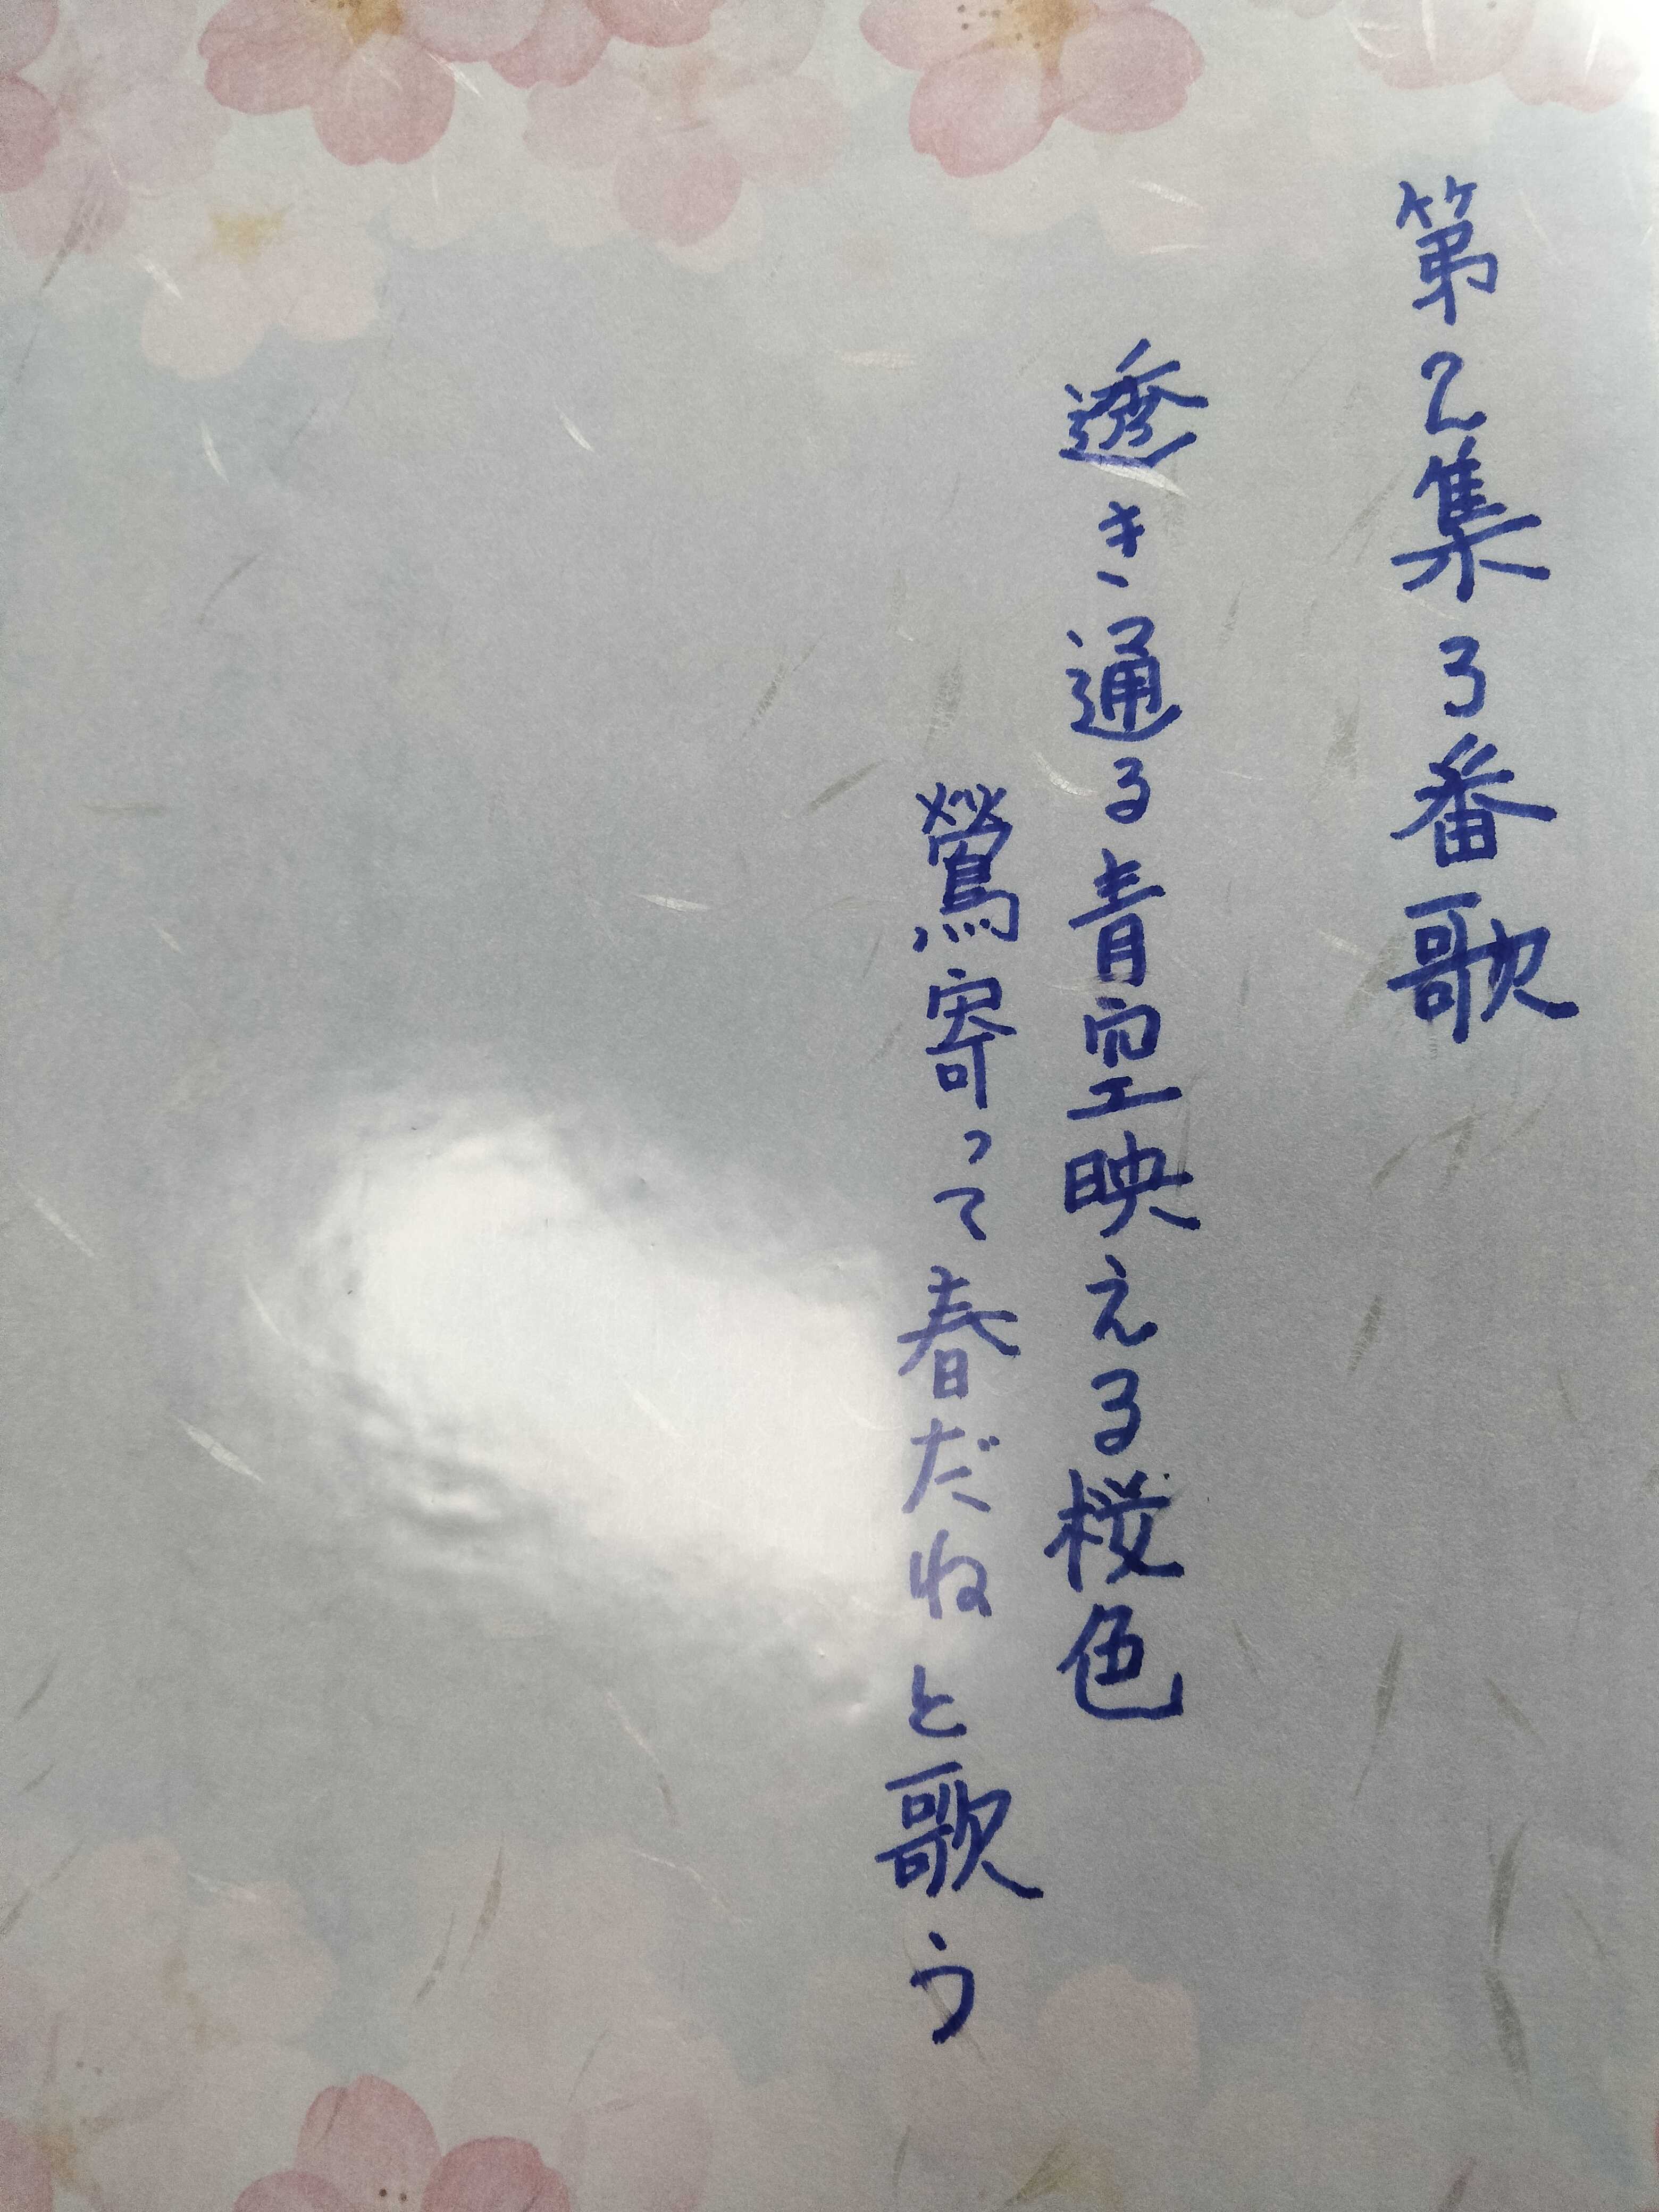 第2集3番歌
透き通る青空映える桜色
鶯寄って春だねと歌う